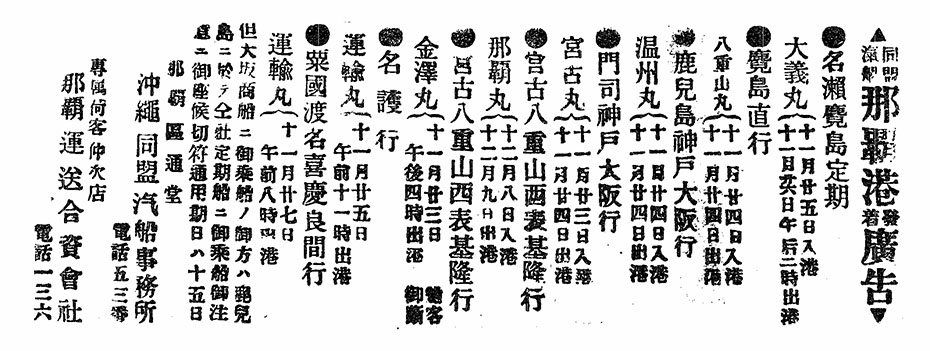 ▲同盟滊船那覇港發着廣告▼
●名瀨鹿島定期
大義丸 十一月廿五日入港
十一日仝日午后二時出港
●鹿島直行
八重山丸 十一月廿四日入港
十一月廿四日出港
●鹿兒島神戸大阪行
温州丸 十一月廿四日入港
十一月廿四日出港
●門司神戸大阪行
宮古丸 十一月廿三日入港
十一月廿四日出港
●宮古八重山西表基隆行
那覇丸 十二月八日入港
十二月九日出港
●宮古八重山西表基隆行
金澤丸 十一月廿三日
午後四時出港 船客御斷
●名護行
運輸丸 十一月廿五日
午前十一時出港
●粟國渡名喜慶良間行
運輸丸 十一月廿七日
午前八時出港
但大坂商船ニ御乘船ノ御方ハ鹿兒
島ニ於テ仝社定期船ニ御乘船御注
意ニ御座候切符通用期日ハ十五日
那覇區通堂
沖繩同盟汽船事務所
電話五三番
專属荷客仲次店
那覇運送合資會社
電話一三六